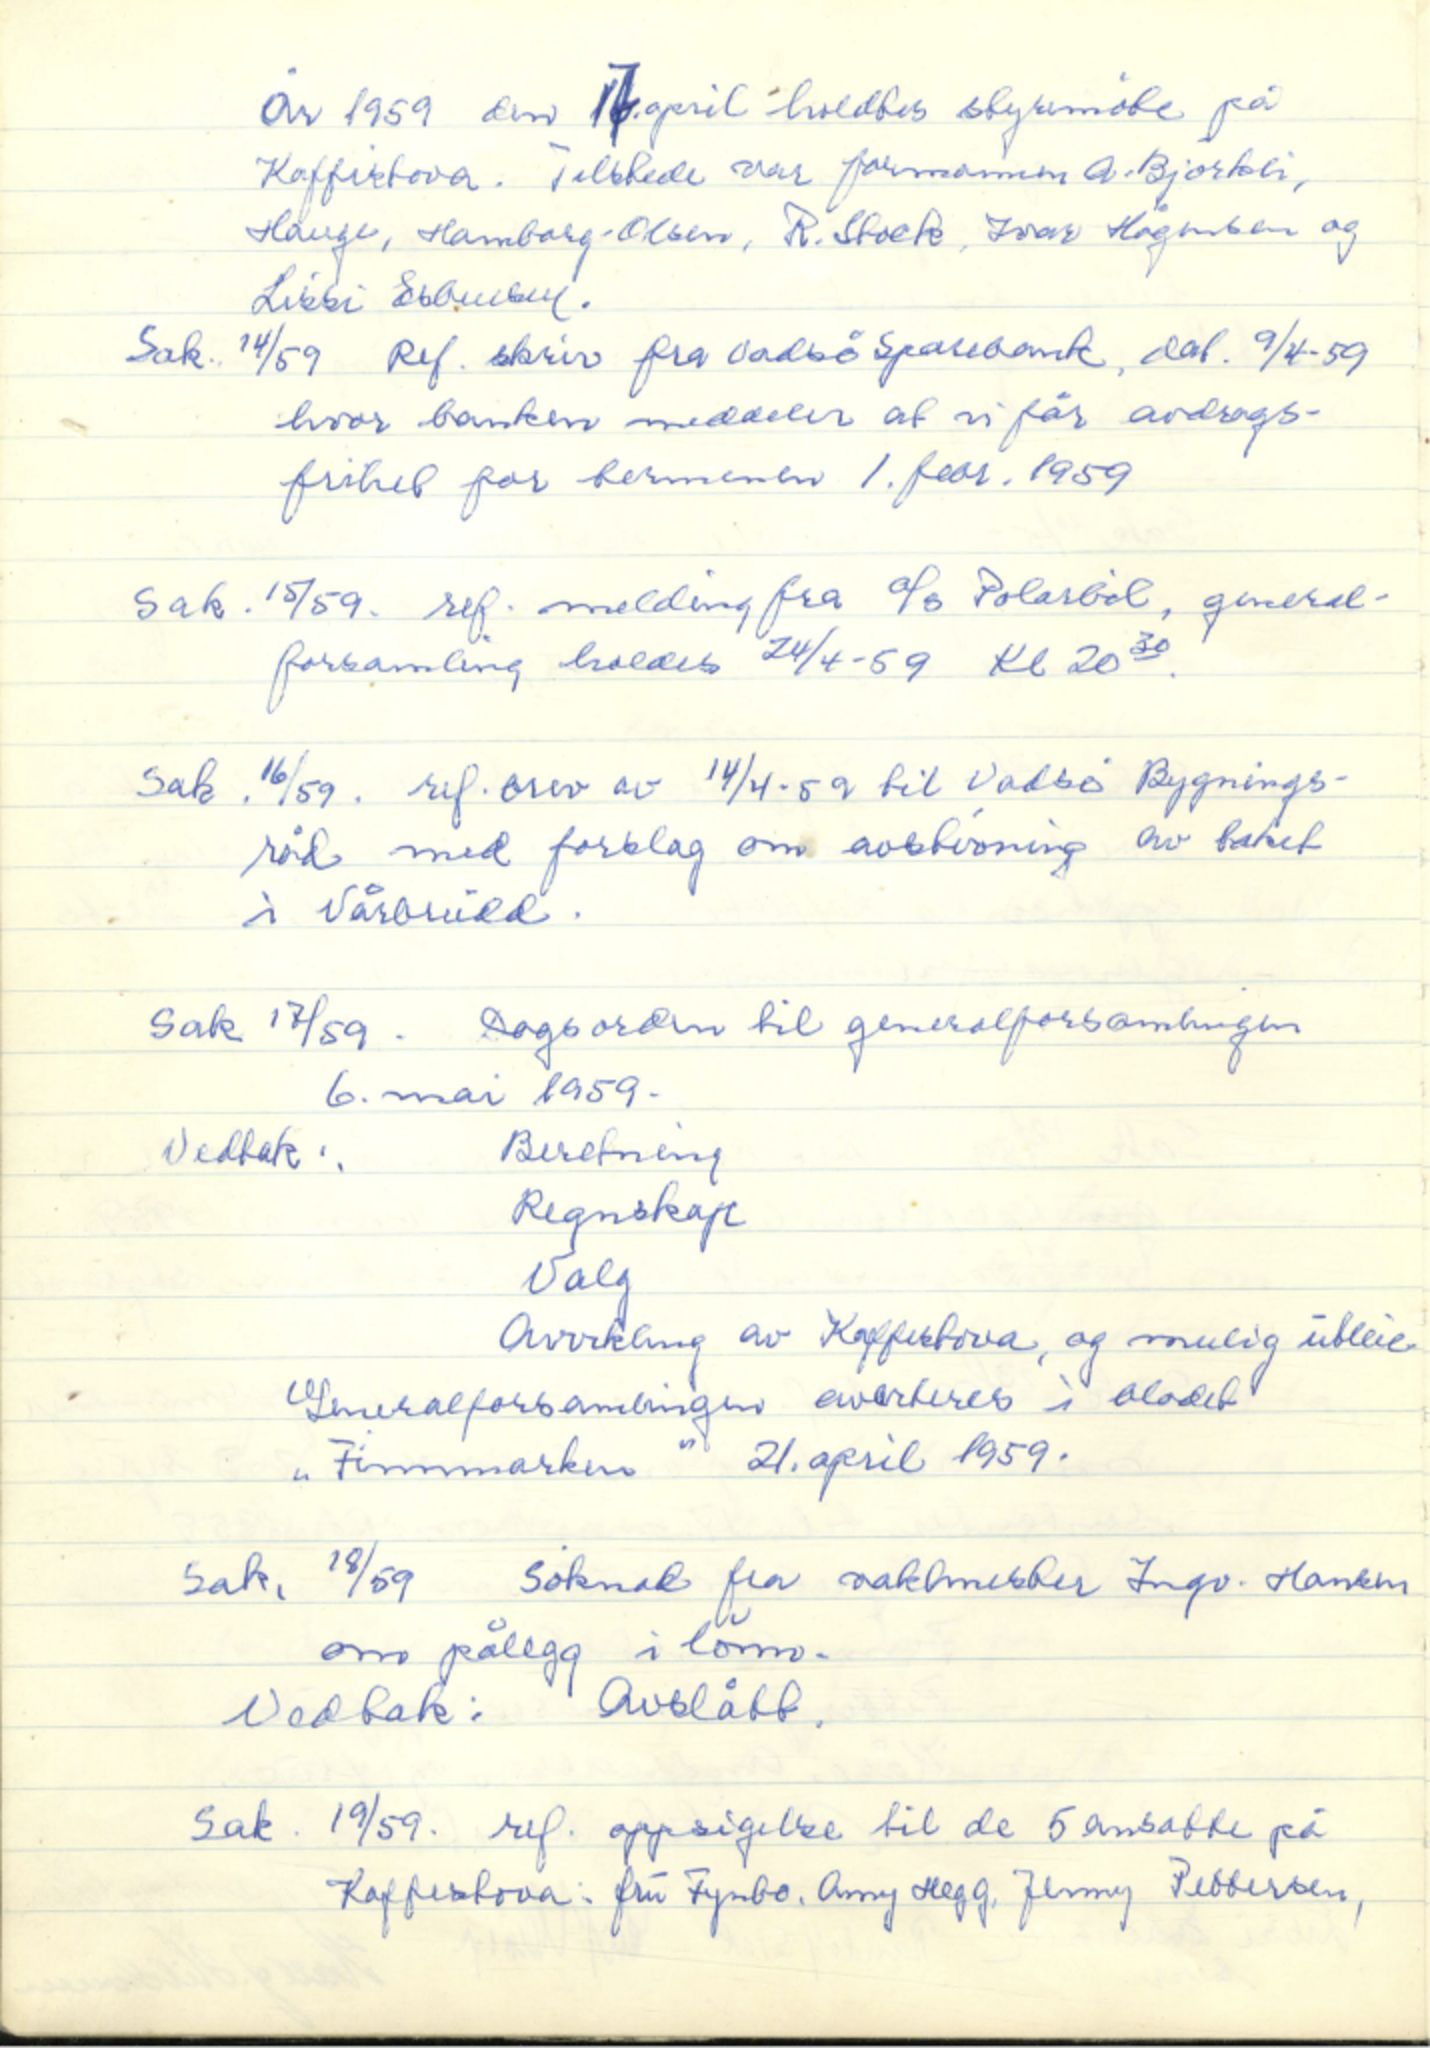 År 1959 den 17. april holdtes styremöte på
Kaffistova. Tilstede var formannen A. Björkli,
Hauge, Hamborg-Olsen, R. Stock, Ivar Hågensen og
Lissi Esbensen.
Sak. 14/59 Ref. skriv fra Vadsö Sparebank, dat. 9/4-59
hvor banken meddeler at vi får avdrags-
frihet for terminen 1. febr. 1959
Sak. 15/59. ref. melding fra a/s Polarbil, general-
forsamling holdes 24/4-59 Kl 20 30.
Sak. 16/59. ref. brev av 14/4-59 til Vadsö Bygnings-
råd med forslag om avstivning av taket
i Vårbrudd.
Sak 17/59. Dagsorden til generalforsamlingen
6. mai 1959.
Vedtak: Beretning
Regnskap
Valg
Avvikling av Kaffestova, og mulig utleie
Generalforsamlingen averteres i bladet
"Finnmarken" 21. april 1959.
Sak, 18/59 Söknad fra vaktmester Ingv. Hansen
om pålegg i lönn.
Vedtak: Avslått.
Sak. 19/59. ref. oppsigelse til de 5 ansatte på
Kaffestova: fru Fynbo. Amy Hegg, Jenny Pettersen,